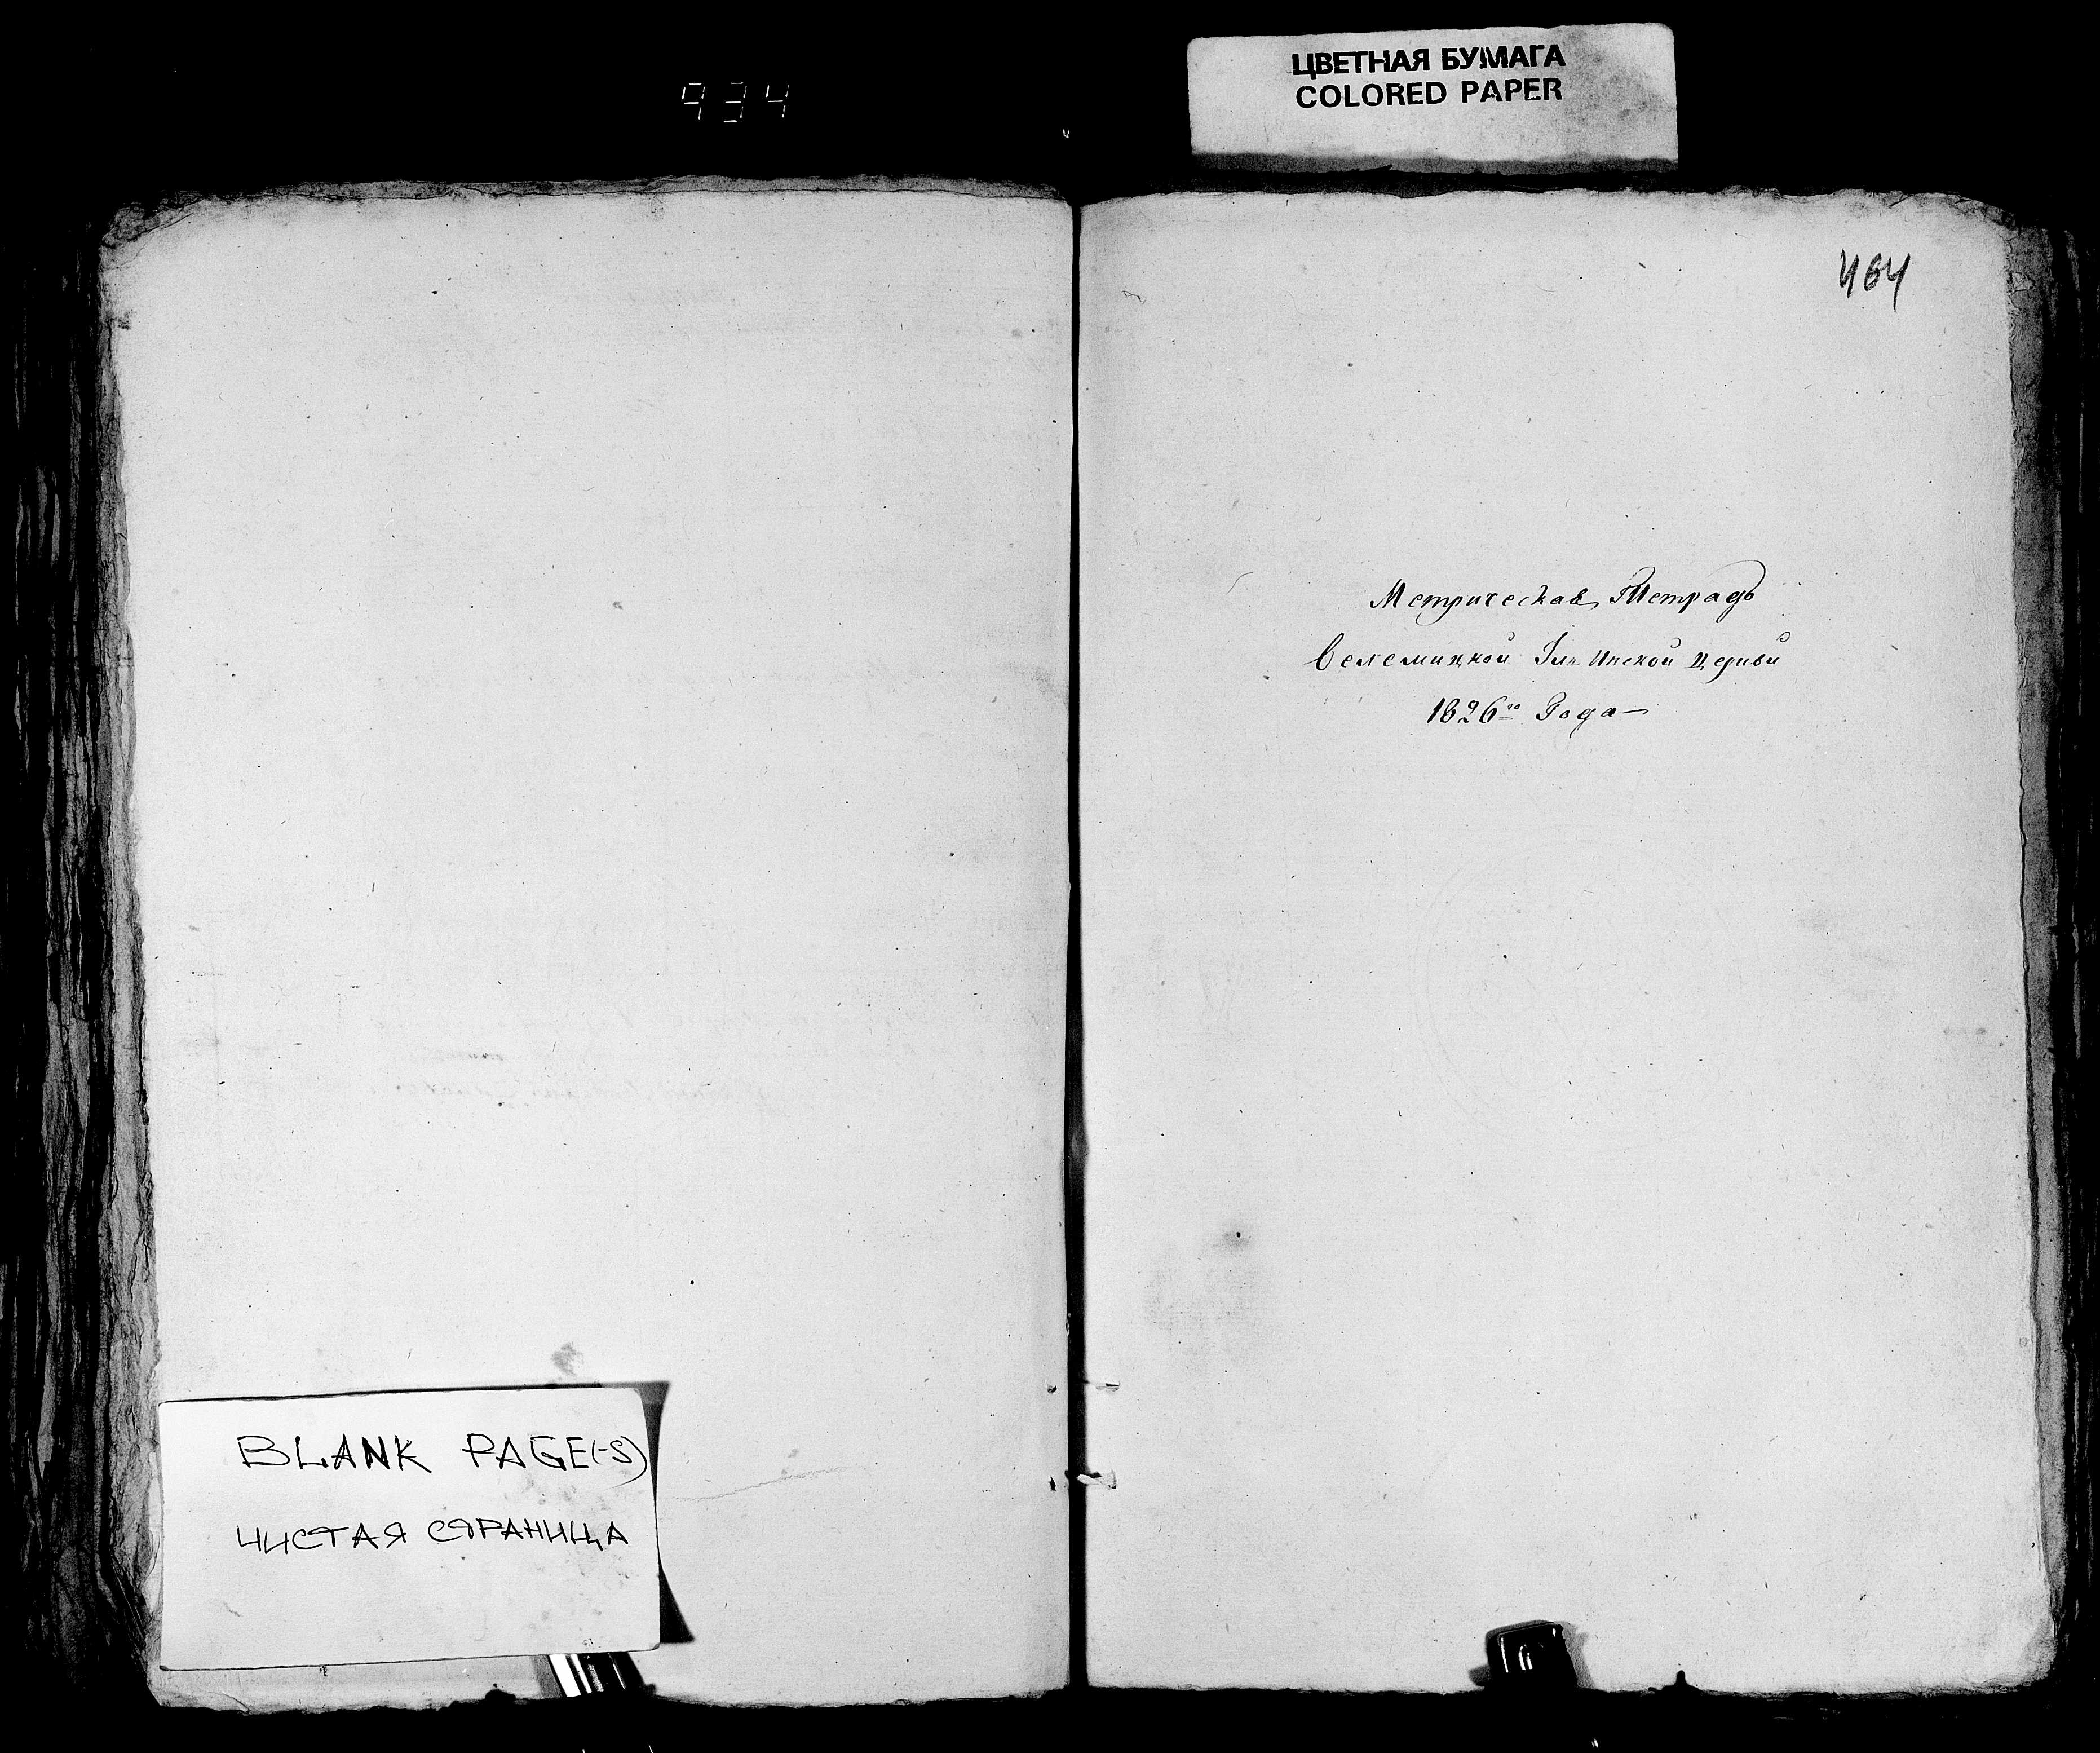 934
ЦВЕТНАЯ БУМАГА
COLORED PAPER
464
Метрическая Тетрадь
Велемицкой Ильинской церкви
1826го Года
BLANK PAGE(-S)
ЧИСТАЯ СТРАНИЦА